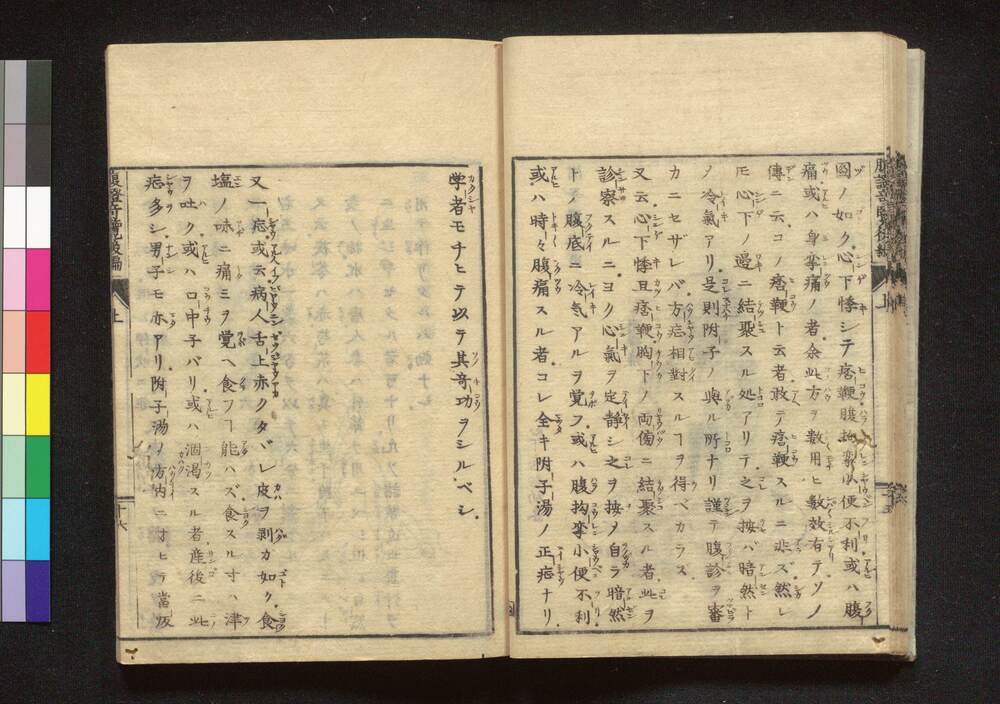 圖ノ如ク心下悸シテ痞鞕腹拘攣小便不利或ハ腹
痛或ハ身挛痛ノ者余此方ヲ數用ヒ數效有テソノ
傳ニ云コノ痞鞕ト云者敢テ痞鞕スルニ非ズ然レ
𪜈心下ノ邊ニ結聚スル処アリテ之ヲ按バ暗然ト
ノ冷氣アリ是則附子ノ與ル所ナリ謹テ腹診ヲ審
カニセザレバ方症相對スルヿヲ得ベカラス
又云心下悸且痞鞕胸下ノ両傍ニ結聚スル者此ヲ
診察スルニヨク心氣ヲ定静シ之ヲ按メ自ラ暗然
トノ腹底ニ冷气アルヲ覚フ或ハ腹拘挛小便不利
或ハ時々腹痛スル者コレ全キ附子湯ノ正症ナリ
学者モチヒテ以テ其奇功ヲシルベシ
又一症或云病人舌上赤クタヾレ皮ヲ剥カ如ク食
塩ノ味ニ痛ミヲ覚ヘ食フヿ能ハズ食スル寸ハ津
ヲ吐ク或ハ口中子バリ或ハ涸渇スル者産後ニ此
症多シ男子モ亦アリ附子湯ノ方内ニオヒテ當皈
腹證奇覽後編
上
十六